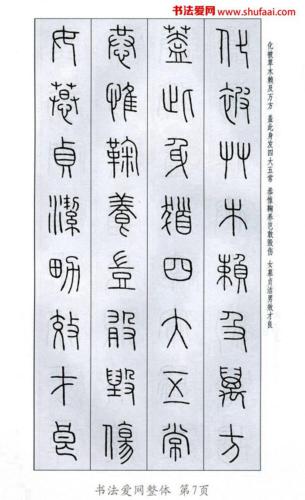 书法爱网
http://www.shufaai.com
化被草木赖及万方 盖此身发四大五常 恭惟鞠养岂敢毁伤 女慕贞洁男效才良
化被艸木賴及萬方
蓋此身髮四大五常
恭惟鞠養豈敢毀傷
女慕貞潔男效才良
书法爱网整体 第7页